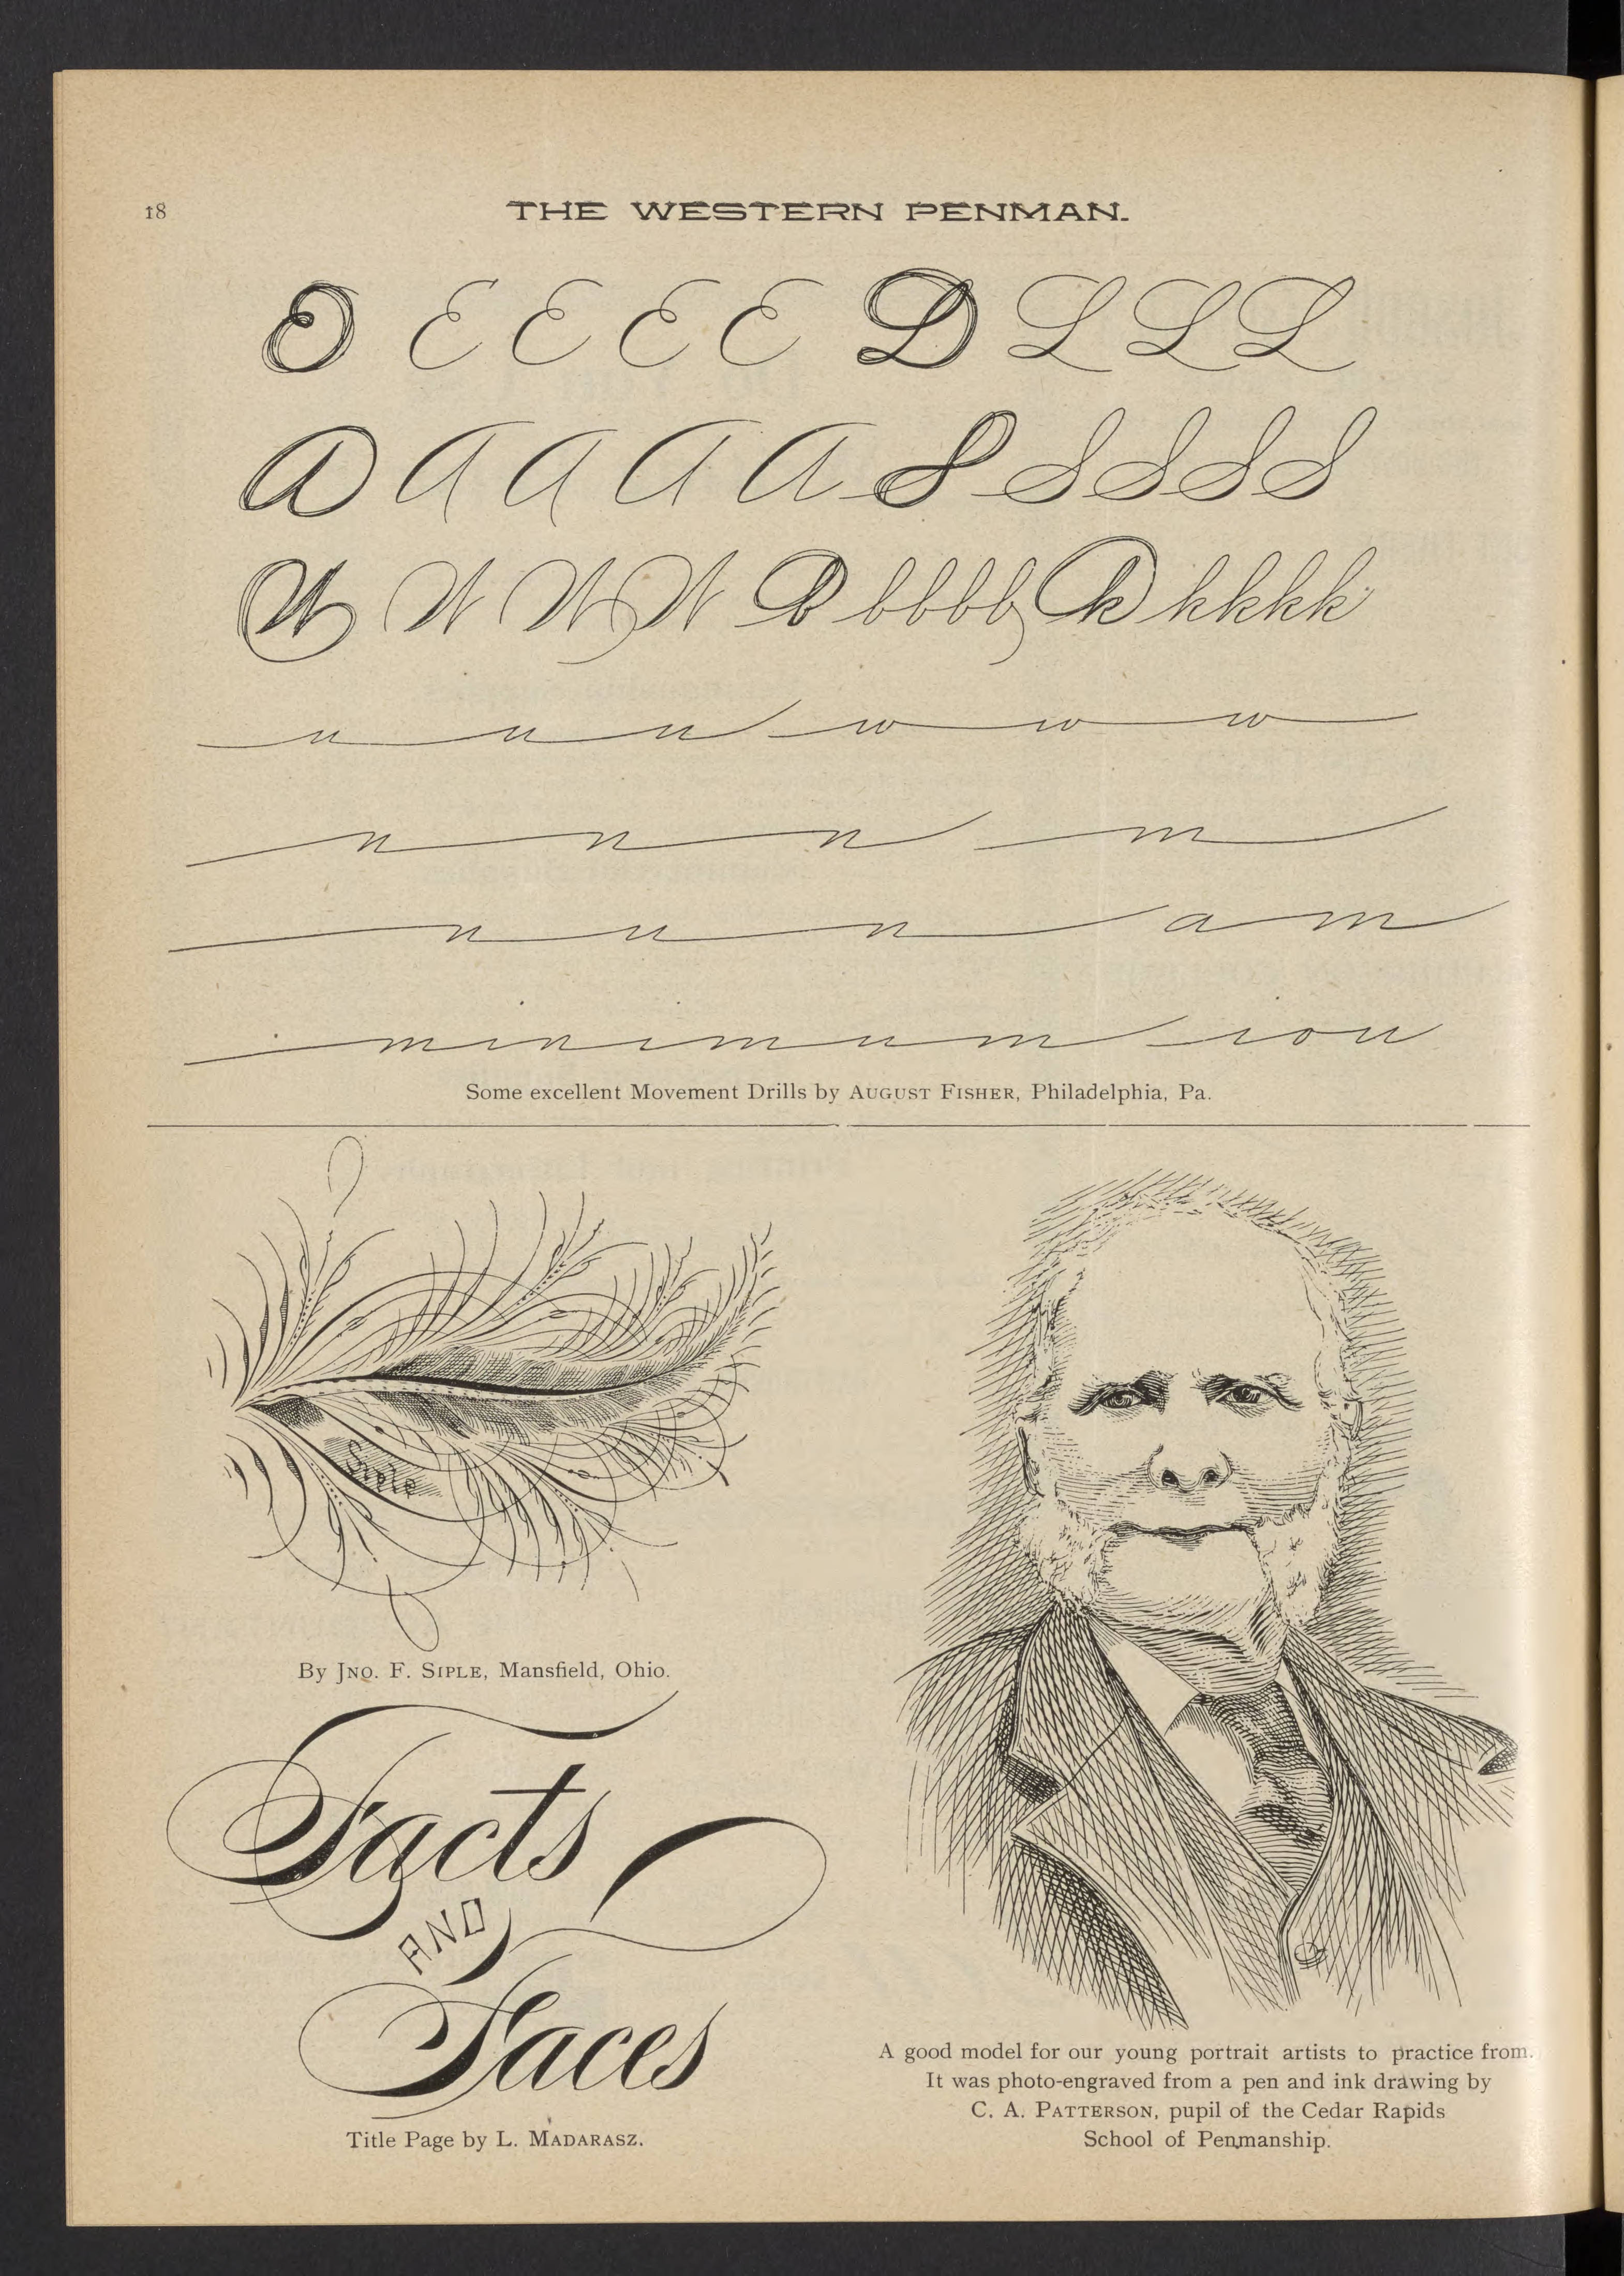 18
THE WESTERN PENMAN.
O E E E E D L L L
A A A A A S S S S S
W W W W b b b b b k k k k k
u u u w w w
n n n m
n u n a m
minimum iou
Some excellent Movement Drills by AUGUST FISHER, Philadelphia, Pa.
Siple
By JNO. F. SIPLE, Mansfield, Ohio.
Facts
AND
Faces
Title Page by L. MADARASZ.
A good model for our young portrait artists to practice from.
It was photo-engraved from a pen and ink drawing by
C. A. PATTERSON, pupil of the Cedar Rapids
School of Penmanship.